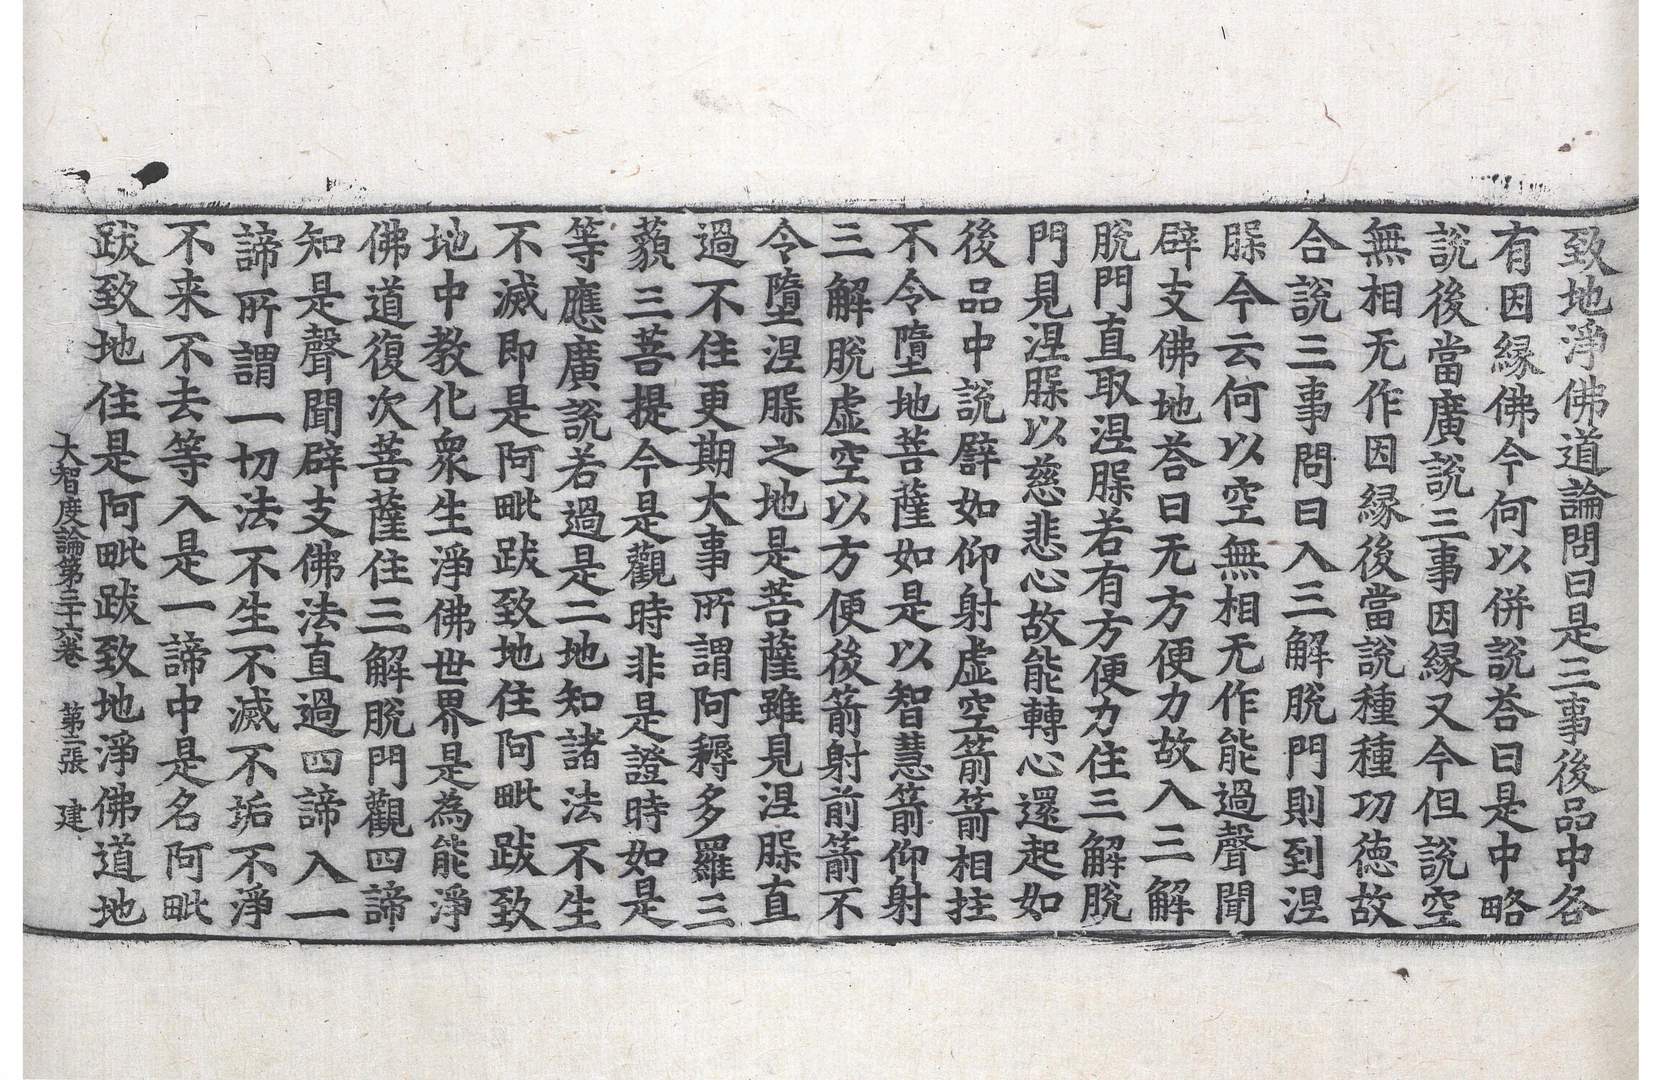 致地淨佛道論問曰是三事後品中各
有因縁佛今何以併說荅曰是中略
說後當廣說三事因縁又今但說空
無相无作因縁後當說種種功德故
合說三事問曰入三解脫門則到涅
腂今云何以空無相无作能過聲聞
辟支佛地荅曰无方便力故入三解
脫門直取涅腂若有方便力住三解脫
門見涅腂以慈悲心故能轉心還起如
後品中說譬如仰射虛空箭箭相拄
不令墮地菩薩如是以智慧箭仰射
三解脫虛空以方便後箭射前箭不
令墮涅腂之地是菩薩雖見涅腂直
過不住更期大事所謂阿耨多羅三
藐三菩提今是觀時非是證時如是
等應廣說若過是二地知諸法不生
不滅即是阿毗跋致地住阿毗跋致
地中教化衆生淨佛世界是為能淨
佛道復次菩薩住三解脫門觀四諦
知是聲聞辟支佛法直過四諦入一
諦所謂一切法不生不滅不垢不淨
不来不去等入是一諦中是名阿毗
跋致地住是阿毗跋致地淨佛道地
大智度論第三十六卷 第二張 建